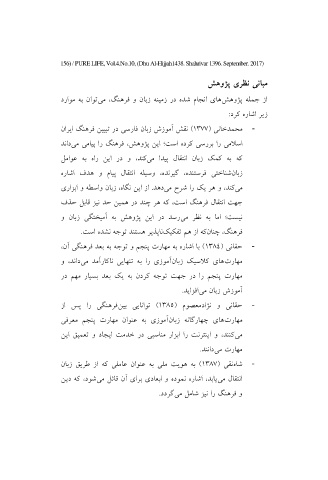 156) / PURE LIFE, Vol.4.No.10, (Dhu Al-Hijjah1438. Shahrivar 1396. September. 2017)
مبانی نظری پژوهش
از جمله پژوهش‌های انجام شده در زمینه زبان و فرهنگ، می‌توان به موارد
زیر اشاره کرد:
- محمدخانی (۱۳۷۷) نقش آموزش زبان فارسی در تبیین فرهنگ ایران
اسلامی را بررسی کرده است؛ این پژوهش، فرهنگ را پیامی می‌داند
که به کمک زبان انتقال پیدا می‌کند، و در این راه به عوامل
زبان‌شناختی فرستنده، گیرنده، وسیله انتقال پیام و هدف اشاره
می‌کند، و هر یک را شرح می‌دهد. از این نگاه، زبان واسطه و ابزاری
جهت انتقال فرهنگ است، که هر چند در همین حد نیز قابل حذف
نیست؛ اما به نظر می‌رسد در این پژوهش به آمیختگی زبان و
فرهنگ، چنان‌که از هم تفکیک‌ناپذیر هستند توجه نشده است.
- حقانی (۱۳۸٤) با اشاره به مهارت پنجم و توجه به بعد فرهنگی آن،
مهارت‌های کلاسیک زبان‌آموزی را به تنهایی ناکارآمد می‌داند، و
مهارت پنجم را در جهت توجه کردن به یک بعد بسیار مهم در
آموزش زبان می‌افزاید.
- حقانی و نژادمعصوم (۱۳۸٥) توانایی بین‌فرهنگی را پس از
مهارت‌های چهارگانه زبان‌آموزی به عنوان مهارت پنجم معرفی
می‌کنند، و اینترنت را ابزار مناسبی در خدمت ایجاد و تعمیق این
مهارت می‌دانند.
- شاه‌نقی (۱۳۸۷) به هویت ملی به عنوان عاملی که از طریق زبان
انتقال می‌یابد، اشاره نموده و ابعادی برای آن قائل می‌شود، که دین
و فرهنگ را نیز شامل می‌گردد.